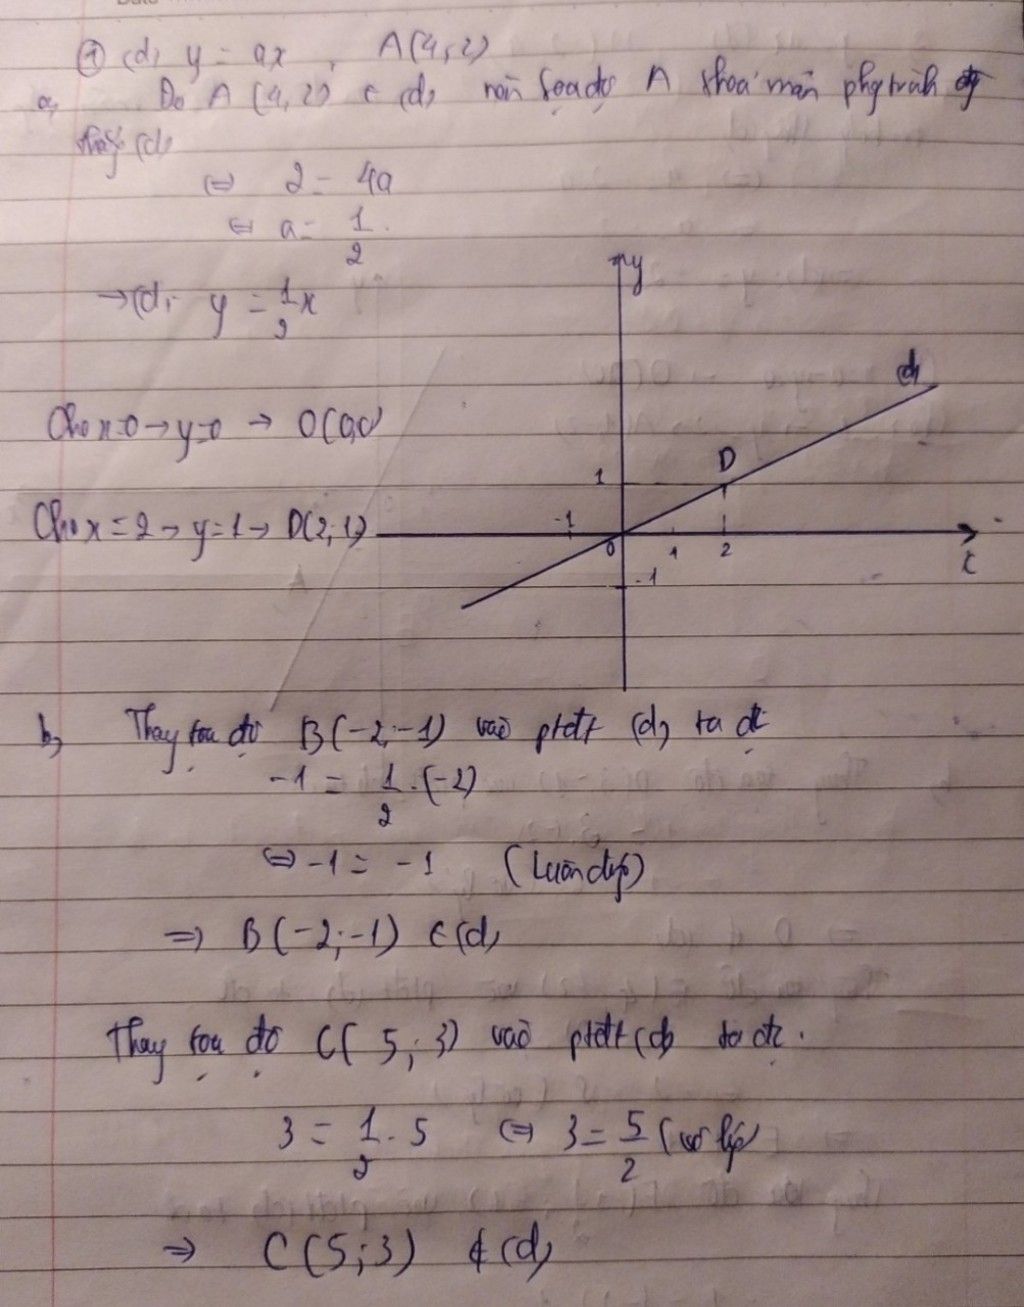 ① (d) y = ax , A(4; 2)
a, Do A (4; 2) ∈ (d) nên toạ độ A thoả mãn phg trình
(d)
⇔ 2 = 4a
⇔ a = 1/2 .
→ (d): y = 1/2 x
y
(d)
Cho x=0 → y=0 → O(0;0)
D
1
Cho x = 2 → y = 1 → D(2; 1)
-1 0 1 2 x
-1
b, Thay toạ độ B(-2; -1) vào ptđt (d) ta đc
-1 = 1/2 . (-2)
⇔ -1 = -1 (luôn đúng)
⇒ B(-2; -1) ∈ (d)
Thay toạ độ C( 5; 3) vào ptđt (d) ta đc .
3 = 1/2 . 5 ⇔ 3 = 5/2 (vô lý)
⇒ C(5; 3) ∉ (d)